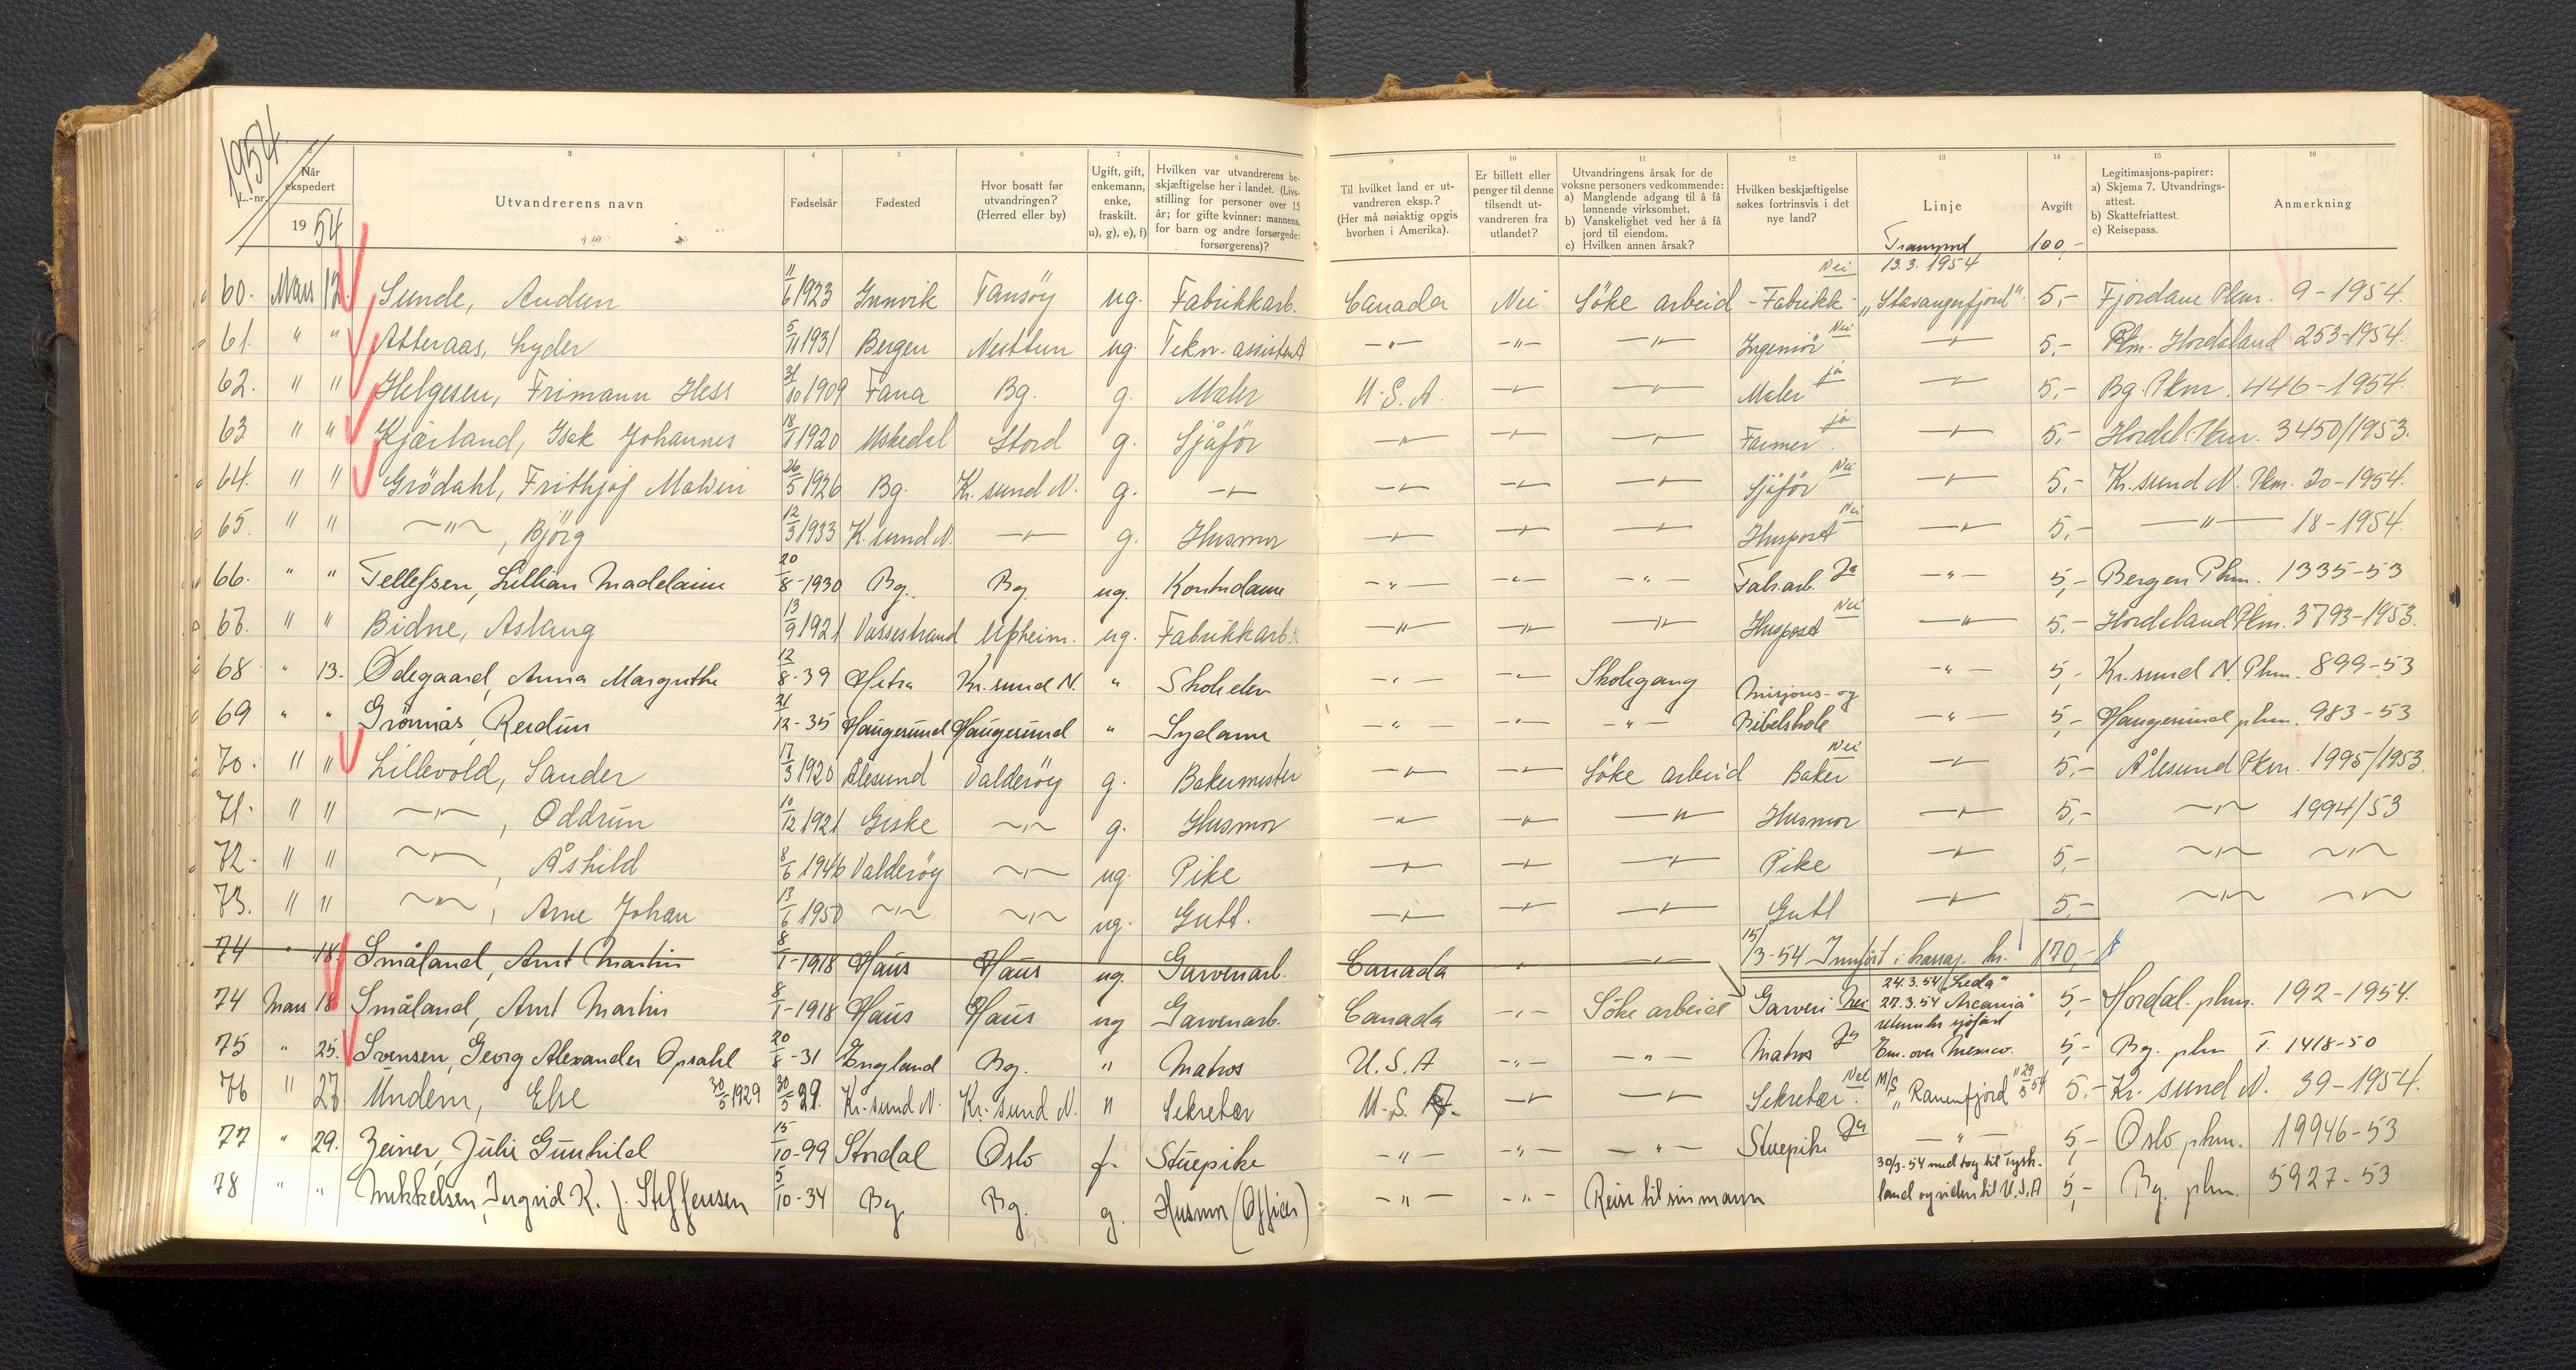 1954
1 3 4 5 6 7 8 9 10 11 12 13 14 15 16
L.-nr. Når ekspedert 1954 Utvandrerens navn Fødselsår Fødested Hvor bosatt før utvandringen? (Herred eller by) Ugift, gift, enkemann, enke, fraskilt. u), g), e), f) Hvilken var utvandrerens beskjæftigelse her i landet. (Livsstilling for personer over 15 år; for gifte kvinner: mannens, for barn og andre forsørgede: forsørgerens)? Til hvilket land er utvandreren eksp.? (Her må nøiaktig opgis hvorhen i Amerika). Er billett eller penger til denne tilsendt utvandreren fra utlandet? Utvandringens årsak for de voksne personers vedkommende: a) Manglende adgang til å få lønnende virksomhet. b) Vanskelighet ved her å få jord til eiendom. c) Hvilken annen årsak? Hvilken beskjæftigelse søkes fortrinsvis i det nye land? Linje Avgift Legitimasjons-papirer: a) Skjema 7. Utvandringsattest. b) Skattefriattest. c) Reisepass. Anmerkning
100,-
60. Mars 12. Sunde, Audun 11/6 1923 Innvik Vansøy ug. Fabrikkarb. Canada Nei Söke arbeid - Fabrikk - Nei 13.3.1954 "Stavangerfjord" 5,- Fjordane Pkm. 9-1954.
61. " " Atteraas, Lyder 5/11 1931 Bergen Nesttun ug. Tekn. assistent -"- -"- -"- Ingeniör Nei -"- 5,- Pkm. Hordaland 253-1954.
62. " " Helgesen, Frimann Hess 31/10 1909 Fana Bg. g. Maler U.S.A. -"- -"- Maler ja -"- 5,- Bg. Pkm. 446-1954.
63 " " Kjærland, Isak Johannes 18/1 1920 Uskedal Stord g. Sjåför -"- -"- -"- Farmer ja -"- 5,- Hordal. Pkm. 3450/1953.
64. " " Grödahl, Frithjof Malvin 26/5 1926 Bg. K. sund N. g. -"- -"- -"- -"- Sjåför Nei -"- 5,- Kr. sund N. Pkm. 20-1954.
65. " " -"-, Bjørg 12/3 1933 K. sund N. -"- g. Husmor -"- -"- -"- Huspost Nei -"- 5,- -"- 18-1954.
66. " " Tellefsen, Lillian Madelaine 20/8-1930 Bg. Bg. ug. Kontordame -"- -"- -"- Fabr.arb. Ja -"- 5,- Bergen Pkm. 1335-53
67. " " Bidne, Aslaug 13/9 1921 Vossestrand Upheim. ug. Fabrikkarb. -"- -"- -"- Huspost Nei -"- 5,- Hordaland Pkm. 3793-1953.
68 " 13. Ødegaard, Anna Margrethe 12/8-39 Hitra Kr. sund N. " Skoleelev -"- -"- Skolegang Misjons- og -"- 5,- Kr. sund N. Pkm. 899-53
69 " " Grønnås, Reidun 21/12-35 Haugesund Haugesund " Sydame -"- -"- -"- Bibelskole -"- 5,- Haugesund pkm. 983-53
70. " " Lillevold, Sander 17/3 1920 Ålesund Valderöy g. Bakermester -"- -"- Söke arbeid Baker Nei -"- 5,- Ålesund Pkm. 1995/1953.
71. " " -"-, Oddrun 10/12 1921 Giske -"- g. Husmor -"- -"- -"- Husmor -"- 5,- -"- 1994/53
72. " " -"-, Åshild 8/6 1946 Valderöy -"- ug. Pike -"- -"- -"- Pike -"- 5,- -"- -"-
73. " " -"-, Arne Johan 13/6 1950 -"- -"- ug. Gutt. -"- -"- -"- Gutt -"- 5,- -"- -"-
74 " 18. Småland, Arnt Martin 8/1-1918 Haus Haus ug. Garveriarb. Canada " -"- 15/3-54 Innført i kassaj. kr. 170,-
74 Mars 18 Småland, Arnt Martin 8/1-1918 Haus Haus ug Garveriarb. Canada -"- Söke arbeid Garveri Nei 24.3.54 "Leda" 27.3.54 "Ascania" 5,- Hordal. pkm. 192-1954.
75 " 25. Svensen, Georg Alexander Opsahl 20/8-31 England Bg. " Matros U.S.A -"- -"- Matros Ja utenriks sjöfart Em. over Mexico. 5,- Bg. pkm T. 1418-50
76 " 27 Undem, Else 30/5 1929 30/5 29. Kr. sund N. Kr. sund N. " Sekretær U.S.A. -"- -"- Sekretær. Nei M/S "Ranenfjord" 29/3 54 5,- Kr. sund N. 39-1954.
77 " 29. Zeiner, Julie Gunhild 15/10-99 Stordal Oslo f. Stuepike -"- -"- -"- Stuepike Ja -"- 5,- Oslo pkm. 19946-53
78 " " Mikkelsen, Ingrid K. f. Steffensen 5/10-34 Bg. Bg. g. Husmor (Officer) -"- -"- Reise til sin mann 30/3-54 med tog til Tyskland og videre til U.S.A 5,- Bg. pkm. 5927-53